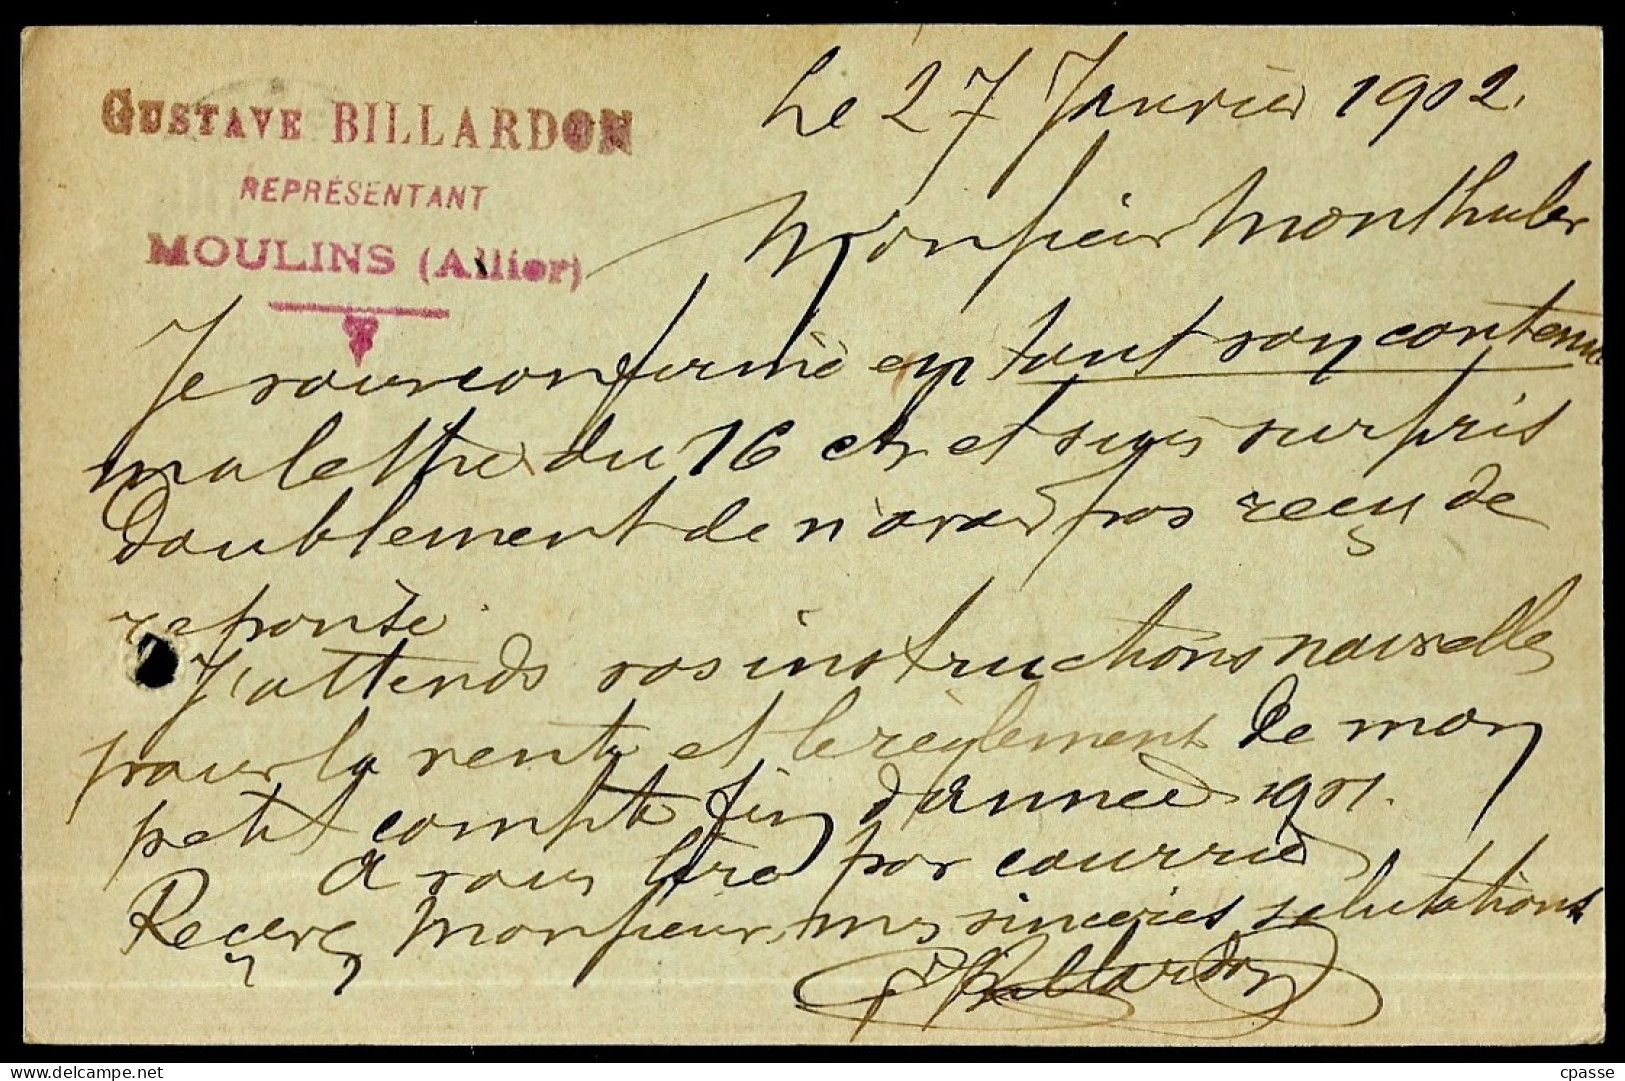 GUSTAVE BILLARDON
REPRÉSENTANT
MOULINS (Allier)
Le 27 Janvier 1902.
Monsieur Monthuler
Je vous confirme en tout son contenu
ma lettre du 16 ct et suis surpris
doublement de n'avoir pas reçu de
reponse.
J'attends vos instructions nouvelles
pour la vente et le règlement de mon
petit compte fin d'année 1901.
A vous lire par courrier
Reçevez Monsieur, mes sincères salutations
G Billardon
cpasse